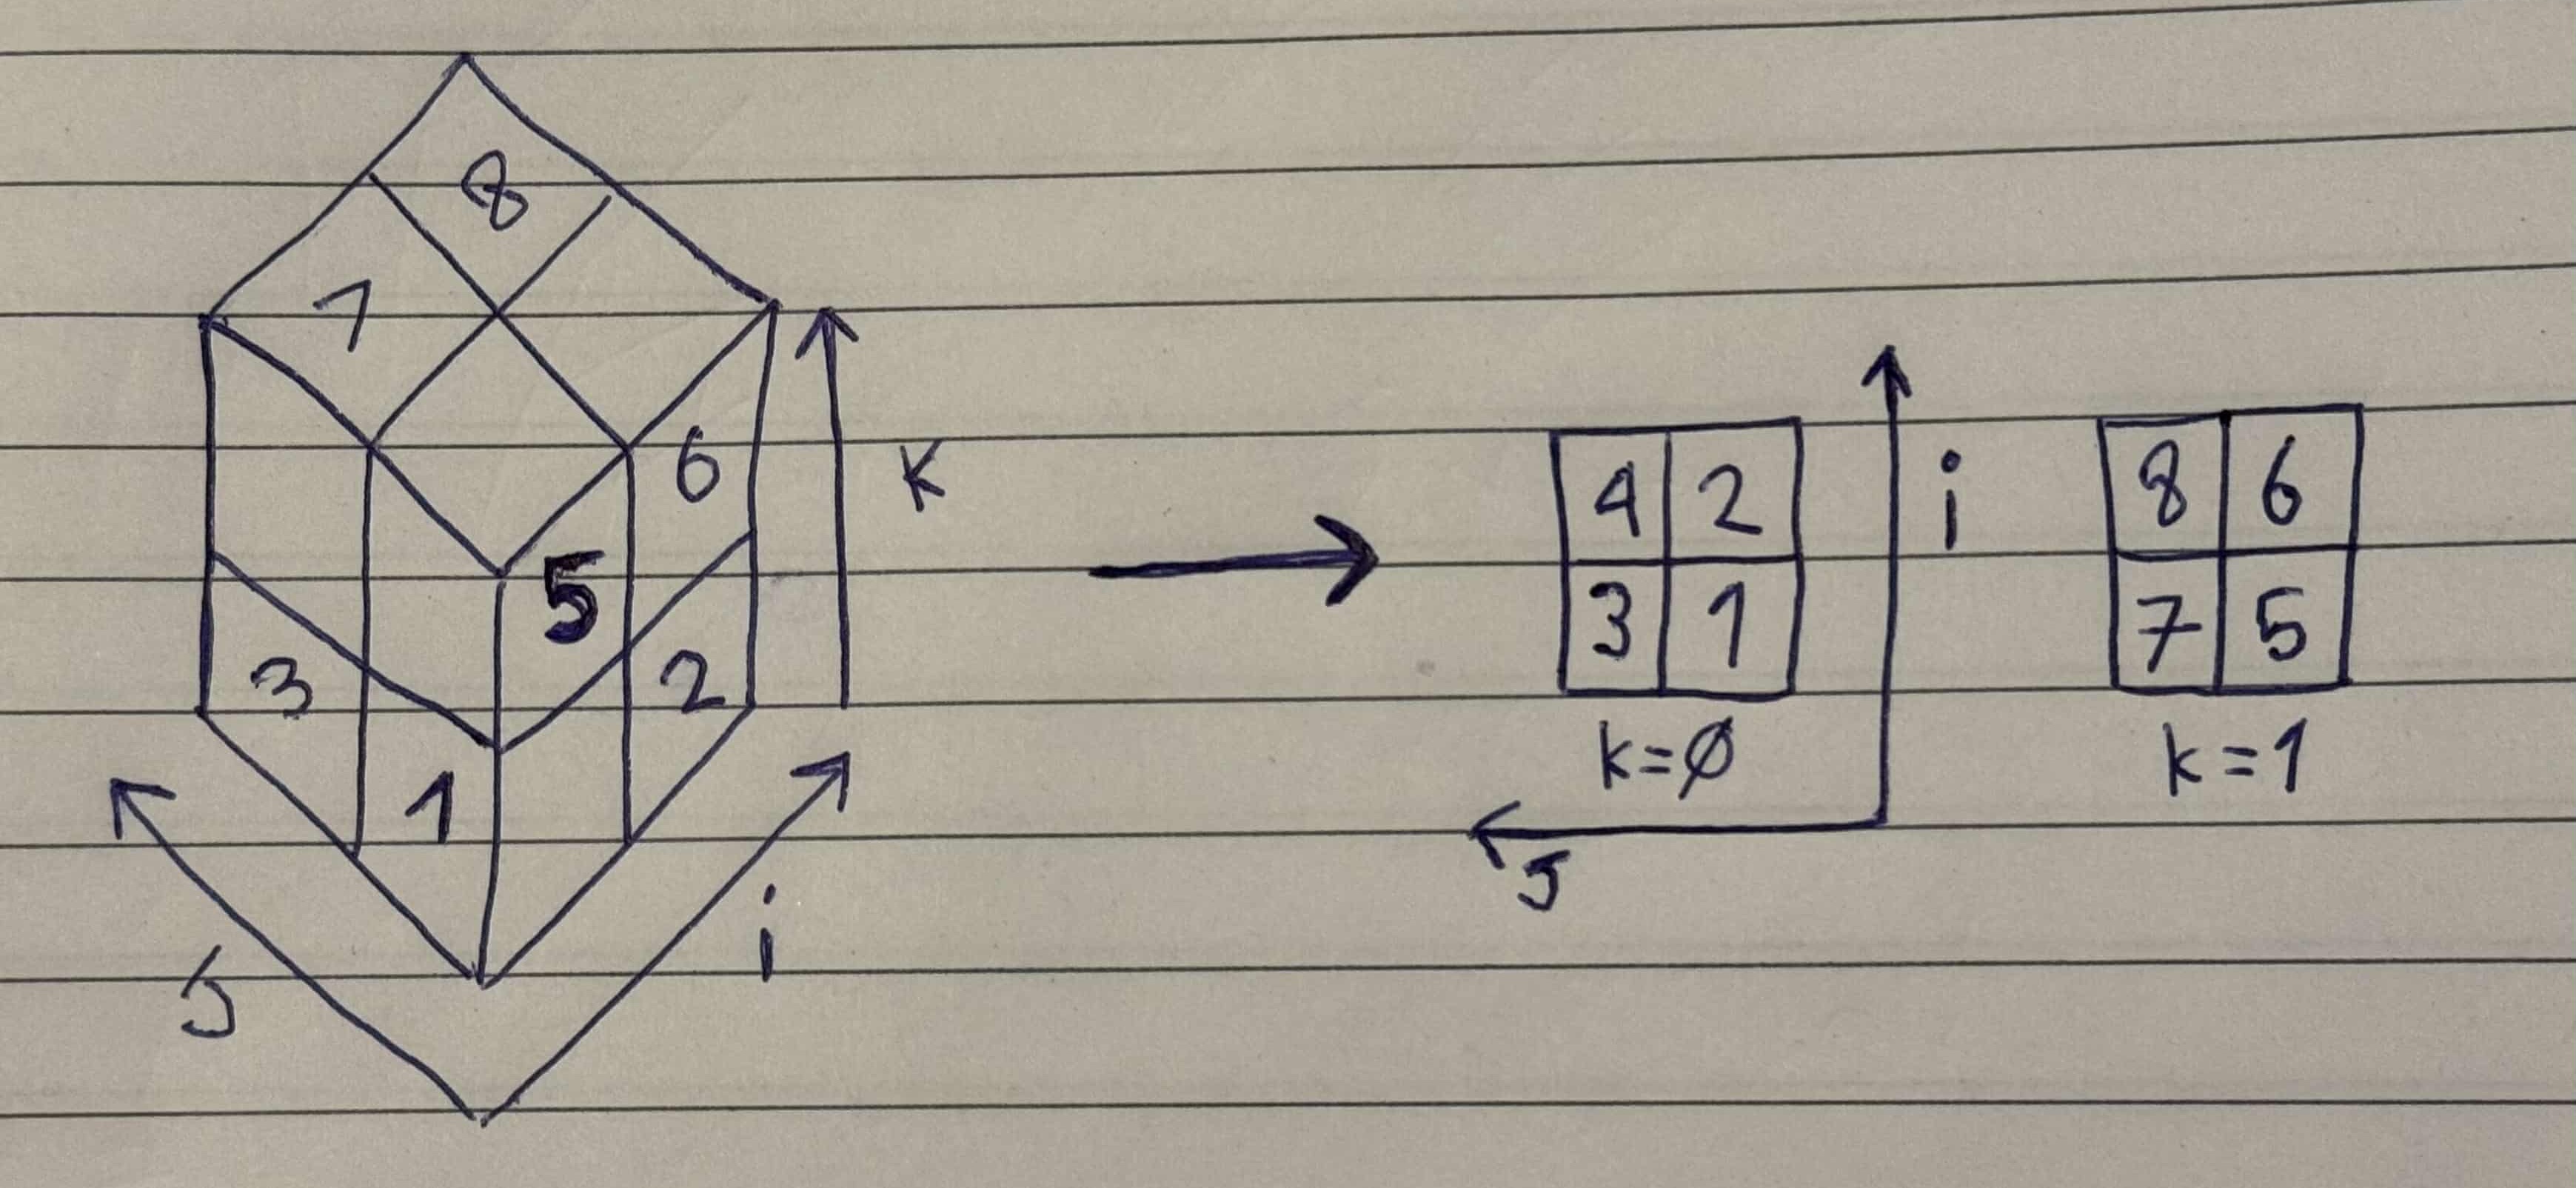 8
7
6
K
5
3
2
1
J
i
4 2
3 1
k=0
i
J
8 6
7 5
k=1